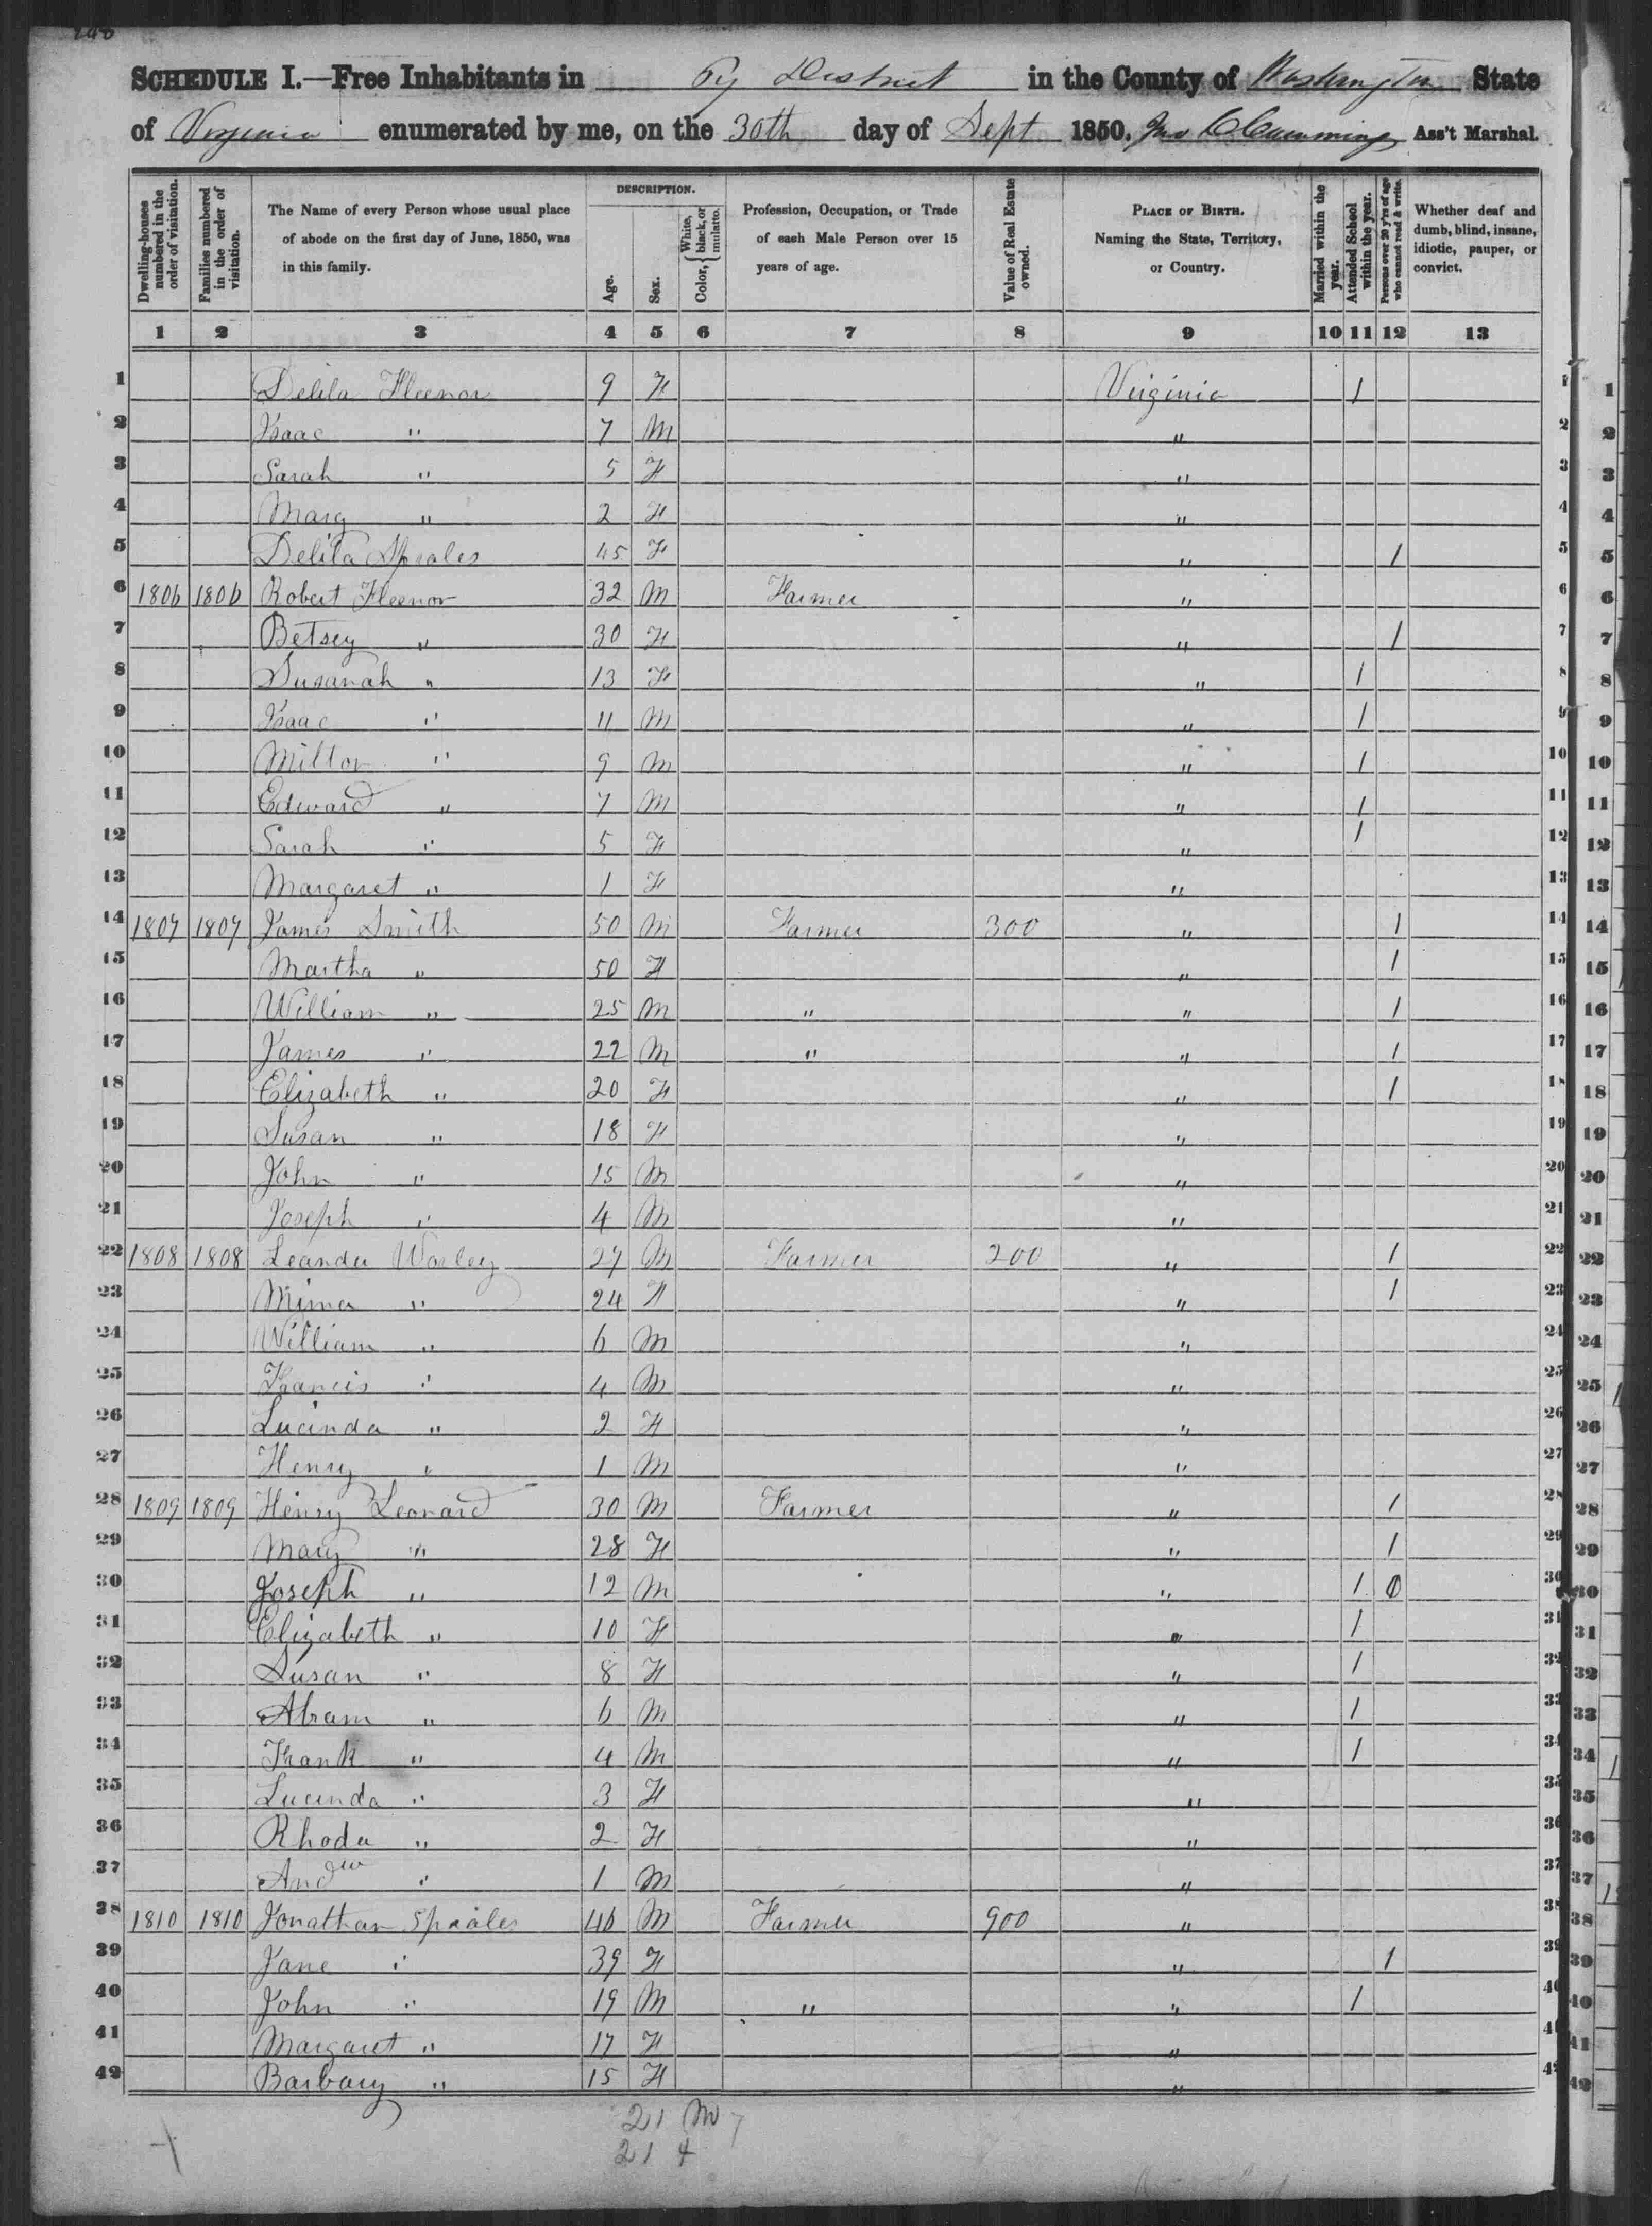 SCHEDULE I.—Free Inhabitants in 67 District in the County of Washington State
of Virginia enumerated by me, on the 30th day of Sept 1850. Jno C Cumming Ass't Marshal.
Dwelling-houses numbered in the order of visitation.
Families numbered in the order of visitation.
The Name of every Person whose usual place of abode on the first day of June, 1850, was in this family.
DESCRIPTION.
Age.
Sex.
Color, { White, black, or mulatto.
Profession, Occupation, or Trade of each Male Person over 15 years of age.
Value of Real Estate owned.
PLACE OF BIRTH. Naming the State, Territory, or Country.
Married within the year.
Attended School within the year.
Persons over 20 y'rs of age who cannot read & write.
Whether deaf and dumb, blind, insane, idiotic, pauper, or convict.
1 2 3 4 5 6 7 8 9 10 11 12 13
1 Delila Fleenor 9 F Virginia 1 1
2 Isaac " 7 M " 2
3 Sarah " 5 F " 3
4 Marg " 2 F " 4
5 Delila Sproles 45 F " 1 5
6 1806 1806 Robert Fleenor 32 M Farmer " 6
7 Betsey " 30 F " 1 7
8 Susanah " 13 F " 1 8
9 Isaac " 11 M " 1 9
10 Milton " 9 M " 1 10
11 Edward " 7 M " 1 11
12 Sarah " 5 F " 1 12
13 Margaret " 1 F " 13
14 1807 1807 James Smith 50 M Farmer 300 " 1 14
15 Martha " 50 F " 1 15
16 William " 25 M " " 1 16
17 James " 22 M " " 1 17
18 Elizabeth " 20 F " 1 18
19 Susan " 18 F " 19
20 John " 15 M " 20
21 Joseph " 4 M " 21
22 1808 1808 Leander Worley 27 M Farmer 200 " 1 22
23 Mima " 24 F " 1 23
24 William " 6 M " 24
25 Francis " 4 M " 25
26 Lucinda " 2 F " 26
27 Henry " 1 M " 27
28 1809 1809 Henry Leonard 30 M Farmer " 1 28
29 Mary " 28 F " 1 29
30 Joseph " 12 M " 1 30
31 Elizabeth " 10 F " 1 31
32 Susan " 8 F " 1 32
33 Abram " 6 M " 1 33
34 Frank " 4 M " 1 34
35 Lucinda " 3 F " 35
36 Rhoda " 2 F " 36
37 Andw " 1 M " 37
38 1810 1810 Jonathan Sproles 46 M Farmer 900 " 38
39 Jane " 39 F " 1 39
40 John " 19 M " " 1 40
41 Margaret " 17 F " 41
42 Barbary " 15 F " 42
21 M
21 F